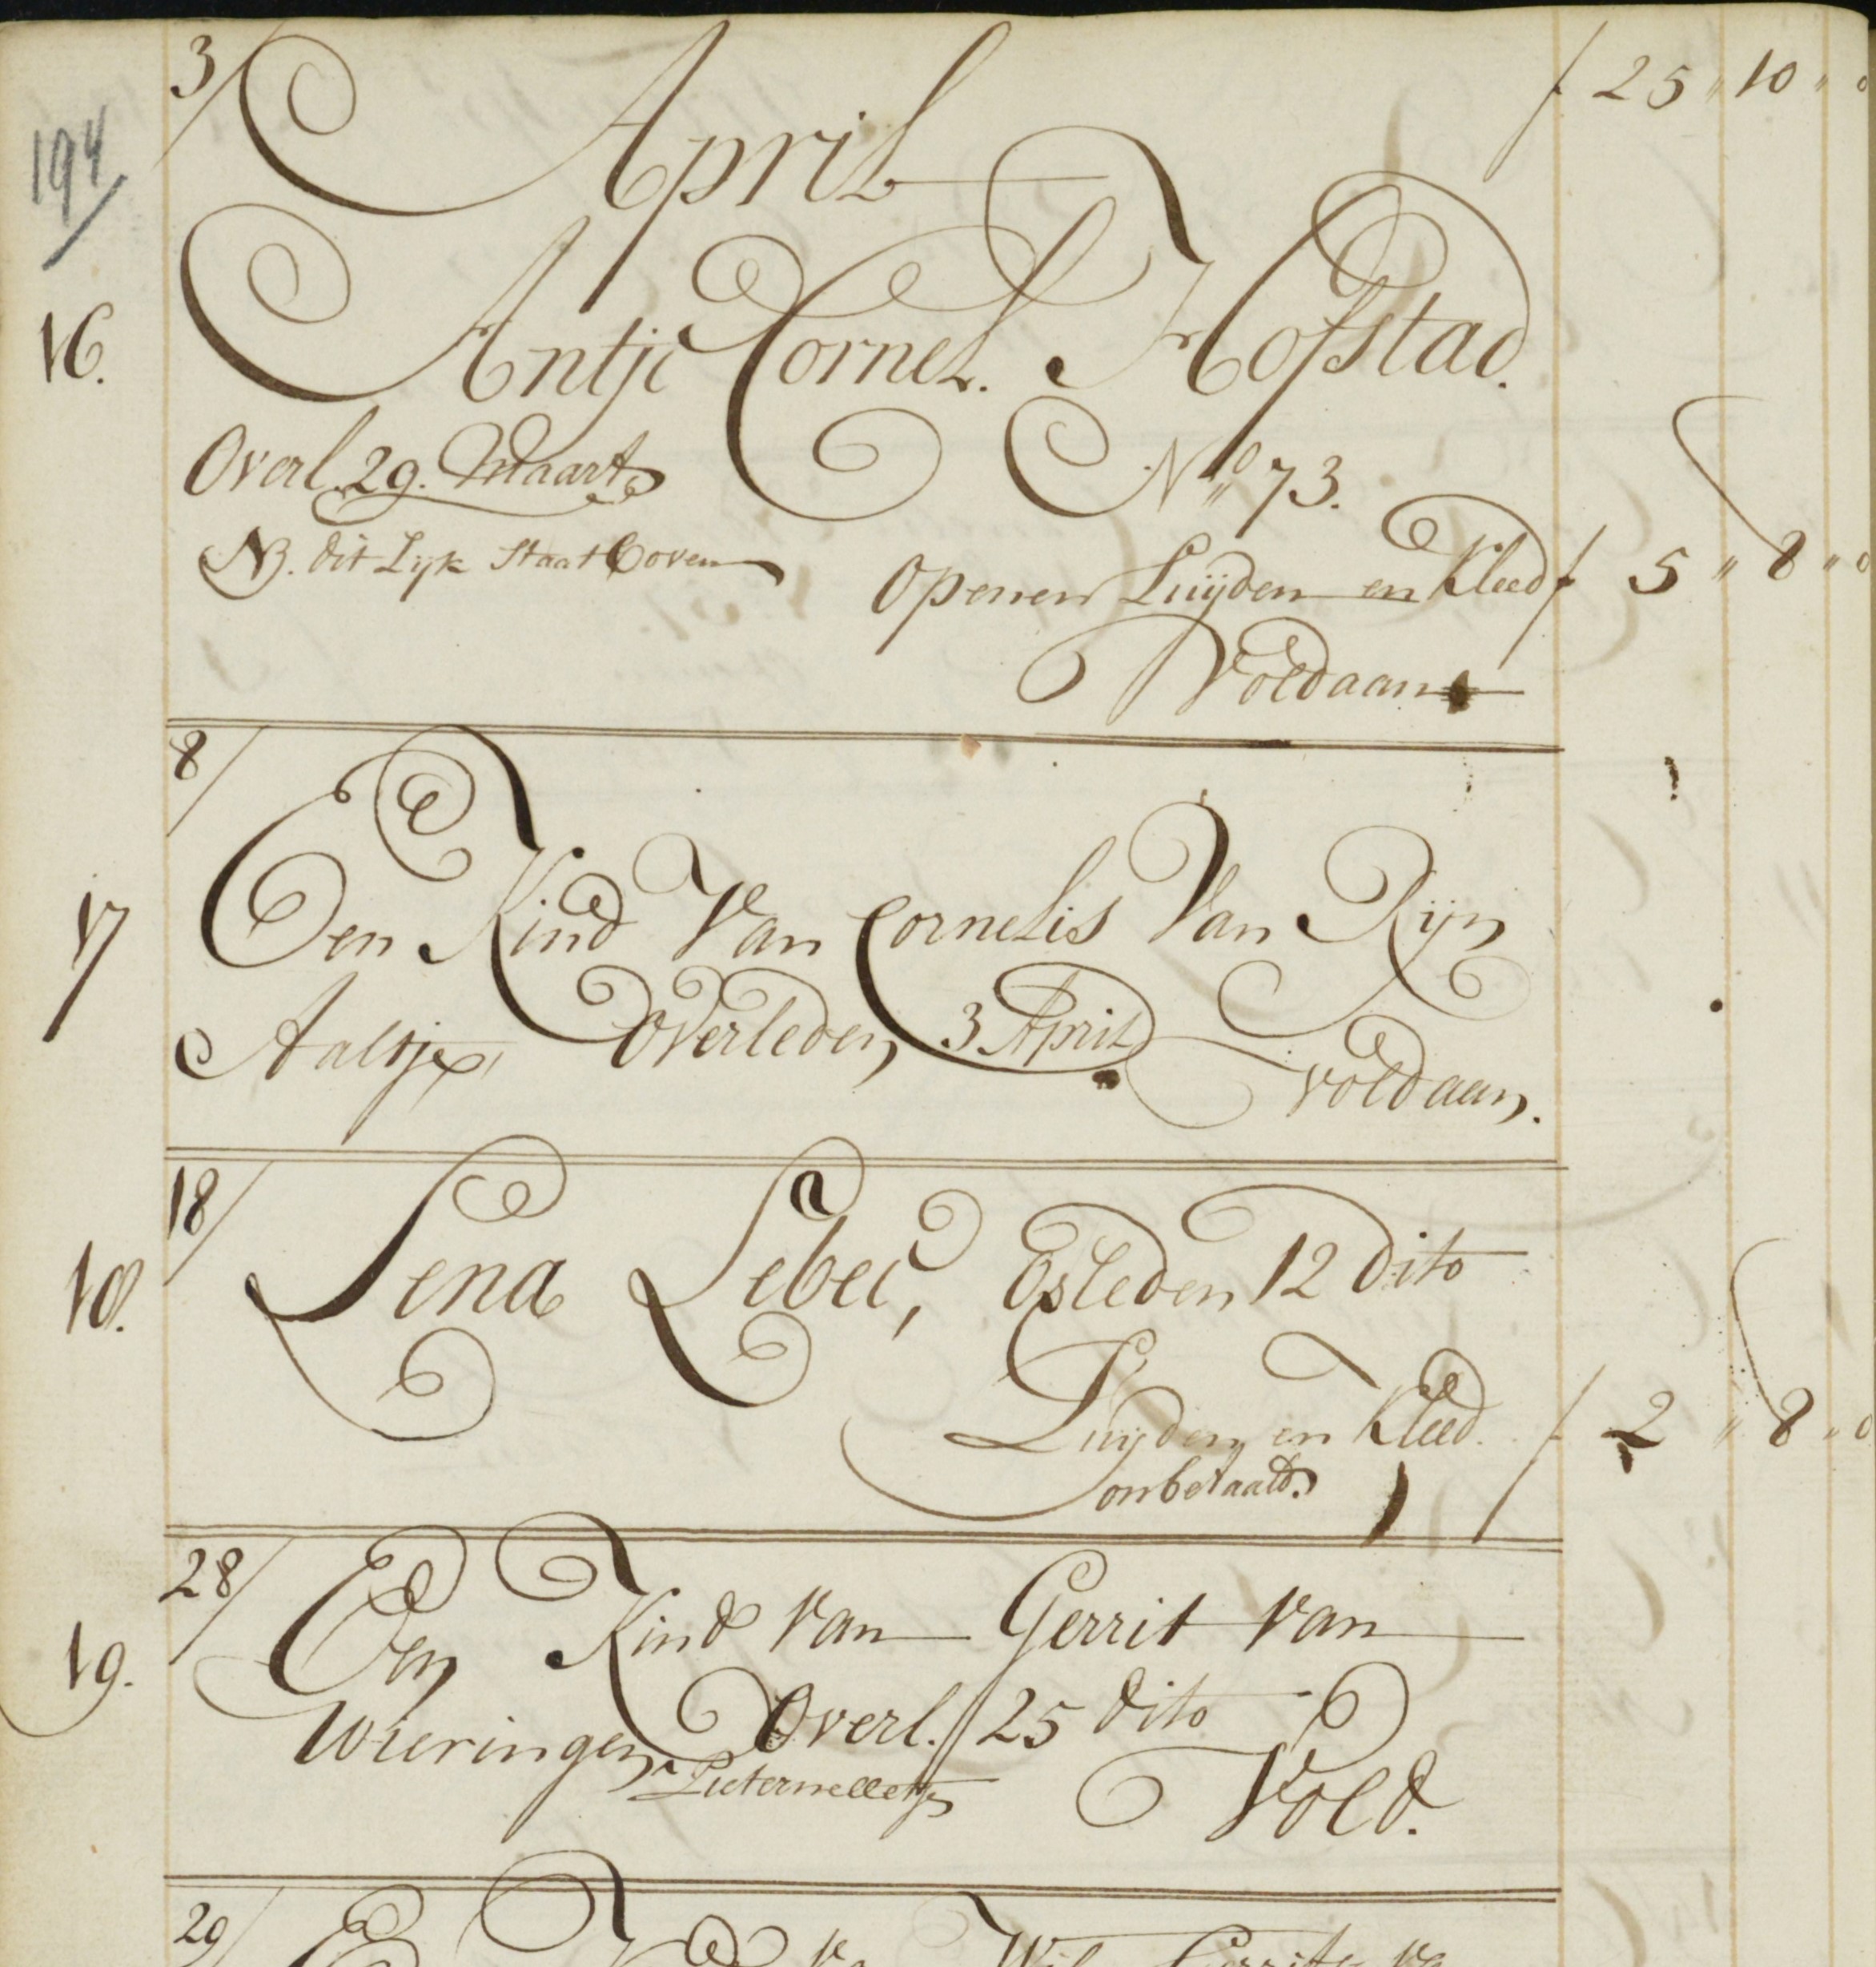 3/ April f 25 " 10 " 0
194
16. Antje Cornel. Hofstad.
Overl. 29. Maart No 73.
NB. dit Lijk Staat boven
Openen Luijden en Kleed f 5 " 8 " 0
Voldaan
8/
17 Een Kind Van Cornelis Van Rijn
Aaltje, Overleden 3 April
voldaan.
18/
18. Lena Lebei, Overleden 12 dito
Luijden en Kleed. f 2 " 8 " 0
onbetaald.
28/
19. Een Kind Van Gerrit Van
Wieringen Overl. 25 dito
Pieternelletje Vold.
29/